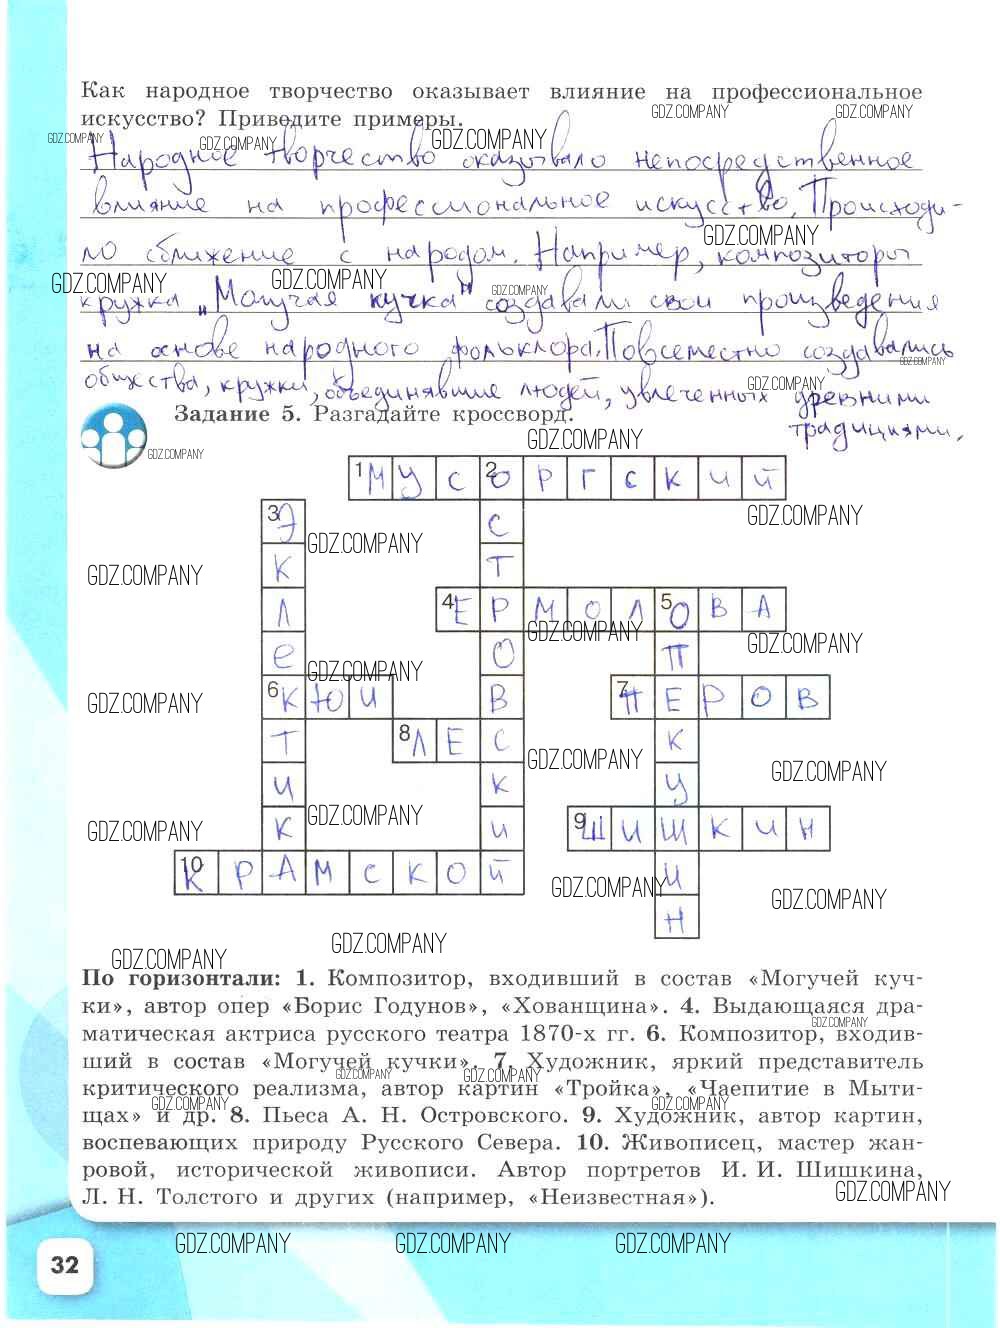 Как народное творчество оказывает влияние на профессиональное
искусство? Приведите примеры.
Народное творчество оказывало непосредственное
влияние на профессиональное искусство. Происходи-
ло сближение с народом. Например, композиторы
кружка „Могучая кучка" создавали свои произведения
на основе народного фольклора. Повсеместно создавались
общества, кружки, объединявшие людей, увлеченных древними
традициями.
Задание 5. Разгадайте кроссворд.
1 МУСОРГСКИЙ
2 ОСТРОВСКИЙ
3 ЭКЛЕКТИКА
4 ЕРМОЛОВА
5 ОПЕКУШИН
6 КЮИ
7 ПЕРОВ
8 ЛЕС
9 ШИШКИН
10 КРАМСКОЙ
По горизонтали: 1. Композитор, входивший в состав «Могучей куч-
ки», автор опер «Борис Годунов», «Хованщина». 4. Выдающаяся дра-
матическая актриса русского театра 1870-х гг. 6. Композитор, входив-
ший в состав «Могучей кучки». 7. Художник, яркий представитель
критического реализма, автор картин «Тройка», «Чаепитие в Мыти-
щах» и др. 8. Пьеса А. Н. Островского. 9. Художник, автор картин,
воспевающих природу Русского Севера. 10. Живописец, мастер жан-
ровой, исторической живописи. Автор портретов И. И. Шишкина,
Л. Н. Толстого и других (например, «Неизвестная»).
GDZ.COMPANY
32